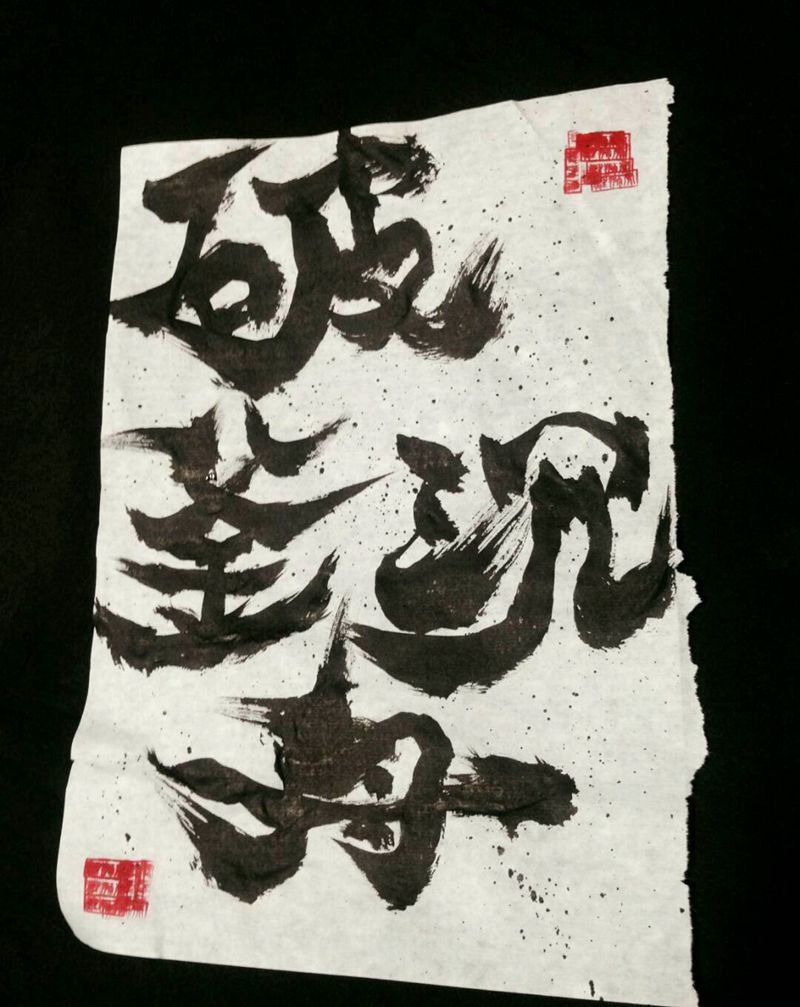 破
釜沉
舟